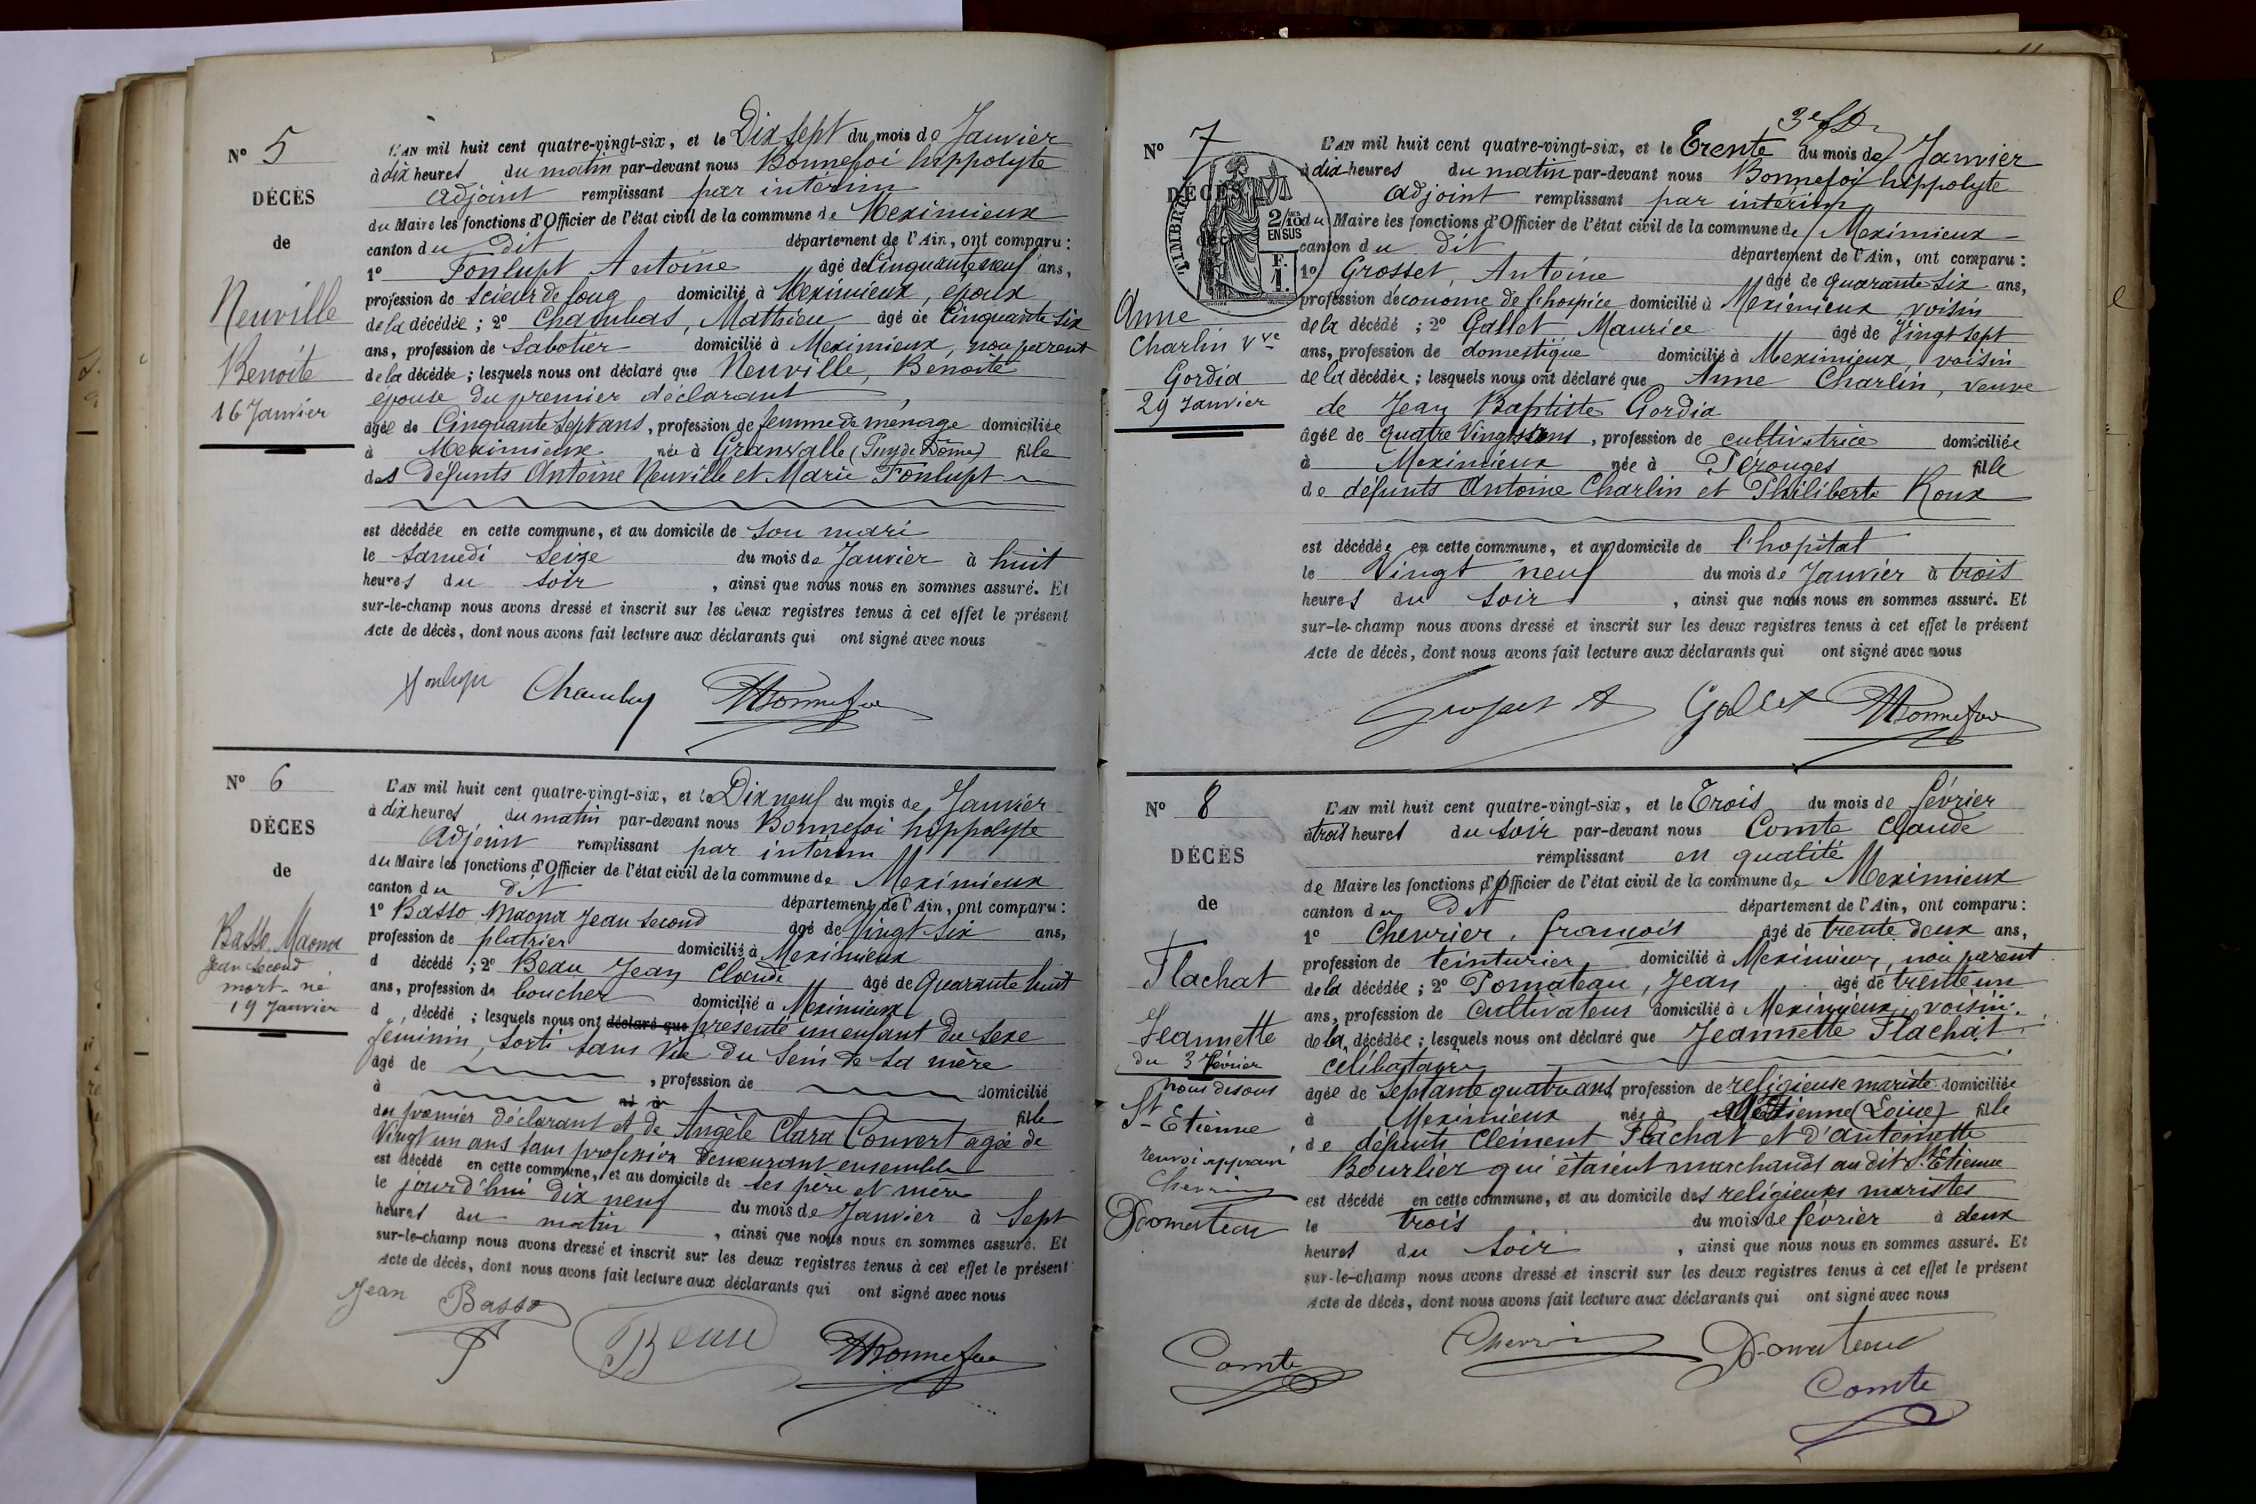 N° 5
DÉCÈS
de
Neuville
Benoite
16 Janvier
L'AN mil huit cent quatre-vingt-six, et le Dix sept du mois de Janvier
à dix heures du matin par-devant nous Bonnefoi hippolyte
Adjoint remplissant par intérim
du Maire les fonctions d'Officier de l'état civil de la commune de Meximieux
canton du dit département de l'Ain, ont comparu :
1° Fonlupt Antoine âgé de Cinquante neuf ans,
profession de scieur de long domicilié à Meximieux, époux
de la décédée ; 2° Chambas, Mathieu âgé de Cinquante six
ans, profession de Sabotier domicilié à Meximieux, non parent
de la décédée ; lesquels nous ont déclaré que Neuville, Benoite
épouse du premier déclarant
âgée de Cinquante sept ans, profession de femme de ménage domiciliée
à Meximieux née à Granvalle (Puy de Dôme) fille
des défunts Antoine Neuville et Marie Fonlupt
est décédée en cette commune, et au domicile de son mari
le Samedi Seize du mois de Janvier à huit
heures du soir, ainsi que nous nous en sommes assuré. Et
sur-le-champ nous avons dressé et inscrit sur les deux registres tenus à cet effet le présent
Acte de décès, dont nous avons fait lecture aux déclarants qui ont signé avec nous
Chambas HBonnefoi
N° 6
DÉCES
de
Basso Maona
Jean Second
mort-né
19 Janvier
L'AN mil huit cent quatre-vingt-six, et le Dix neuf du mois de Janvier
à dix heures du matin par-devant nous Bonnefoi hippolyte
Adjoint remplissant par intérim
du Maire les fonctions d'Officier de l'état civil de la commune de Meximieux
canton du dit département de l'Ain, ont comparu :
1° Basso Maona Jean Second âgé de Vingt six ans,
profession de platrier domicilié à Meximieux
d décédé ; 2° Beau Jean Claude âgé de Quarante huit
ans, profession de boucher domicilié à Meximieux
d décédé ; lesquels nous ont déclaré que présenté un enfant du sexe
féminin, sorti sans vie du sein de sa mère
âgé de , profession de domicilié
à né à fille
du premier déclarant et de Angèle Clara Convert agée de
Vingt un ans sans profession demeurant ensemble
est décédé en cette commune, et au domicile de ses père et mère
le jourd'hui dix neuf du mois de Janvier à Sept
heures du matin, ainsi que nous nous en sommes assuré. Et
sur-le-champ nous avons dressé et inscrit sur les deux registres tenus à cet effet le présent
Acte de décès, dont nous avons fait lecture aux déclarants qui ont signé avec nous
Jean Basso Beau HBonnefoi
N° 7
DÉCÈS
de
TIMBRE
2/10 EN SUS
F. 1.
Anne
Charlin Vve
Gordia
29 Janvier
L'AN mil huit cent quatre-vingt-six, et le Trente du mois de Janvier
à dix heures du matin par-devant nous Bonnefoi hippolyte
Adjoint remplissant par intérim
du Maire les fonctions d'Officier de l'état civil de la commune de Meximieux
canton du dit département de l'Ain, ont comparu :
1° Grosset, Antoine âgé de quarante six ans,
profession d'économe de l'hospice domicilié à Meximieux voisin
de la décédé ; 2° Gallet Maurice âgé de Vingt sept
ans, profession de domestique domicilié à Meximieux, voisin
de la décédée ; lesquels nous ont déclaré que Anne Charlin, veuve
de Jean Baptiste Gordia
âgée de quatre Vingts ans, profession de cultivatrice domiciliée
à Meximieux née à Pérouges fille
de défunts Antoine Charlin et Philiberte Roux
est décédée en cette commune, et au domicile de l'hopital
le Vingt neuf du mois de Janvier à trois
heures du soir, ainsi que nous nous en sommes assuré. Et
sur-le-champ nous avons dressé et inscrit sur les deux registres tenus à cet effet le présent
Acte de décès, dont nous avons fait lecture aux déclarants qui ont signé avec nous
Grosset A Gallet HBonnefoi
N° 8
DÉCÈS
de
Flachat
Jeannette
du 3 février
nous disons
St Etienne
renvoi approuvé
Chevrier
Pomateau
L'AN mil huit cent quatre-vingt-six, et le Trois du mois de février
à trois heures du soir par-devant nous Comte Claude
remplissant en qualité
de Maire les fonctions d'Officier de l'état civil de la commune de Meximieux
canton du dit département de l'Ain, ont comparu :
1° Chevrier, françois âgé de trente deux ans,
profession de teinturier domicilié à Meximieux, non parent
de la décédée ; 2° Pomateau, Jean âgé de trente un
ans, profession de Cultivateur domicilié à Meximieux, voisin
de la décédée ; lesquels nous ont déclaré que Jeannette Flachat
célibataire
âgée de septante quatre ans, profession de religieuse mariste domiciliée
à Meximieux née à St Etienne (Loire) fille
de défunts Clément Flachat et d'Antoinette
Bourlier qui étaient marchands au dit St Etienne
est décédé en cette commune, et au domicile des religieuses maristes
le trois du mois de février à deux
heures du soir, ainsi que nous nous en sommes assuré. Et
sur-le-champ nous avons dressé et inscrit sur les deux registres tenus à cet effet le présent
Acte de décès, dont nous avons fait lecture aux déclarants qui ont signé avec nous
Comte Chevrier Pomateau
Comte